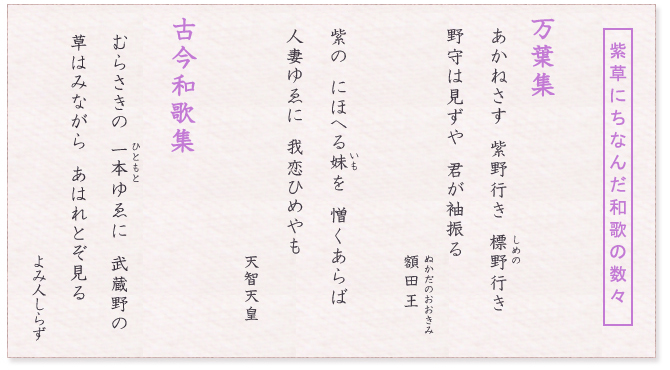 紫草にちなんだ和歌の数々
万葉集
あかねさす 紫野行き 標野行き
しめの
野守は見ずや 君が袖振る
ぬかだのおおきみ
額田王
紫の にほへる妹を 憎くあらば
いも
人妻ゆゑに 我恋ひめやも
天智天皇
古今和歌集
むらさきの 一本ゆゑに 武蔵野の
ひともと
草はみながら あはれとぞ見る
よみ人しらず